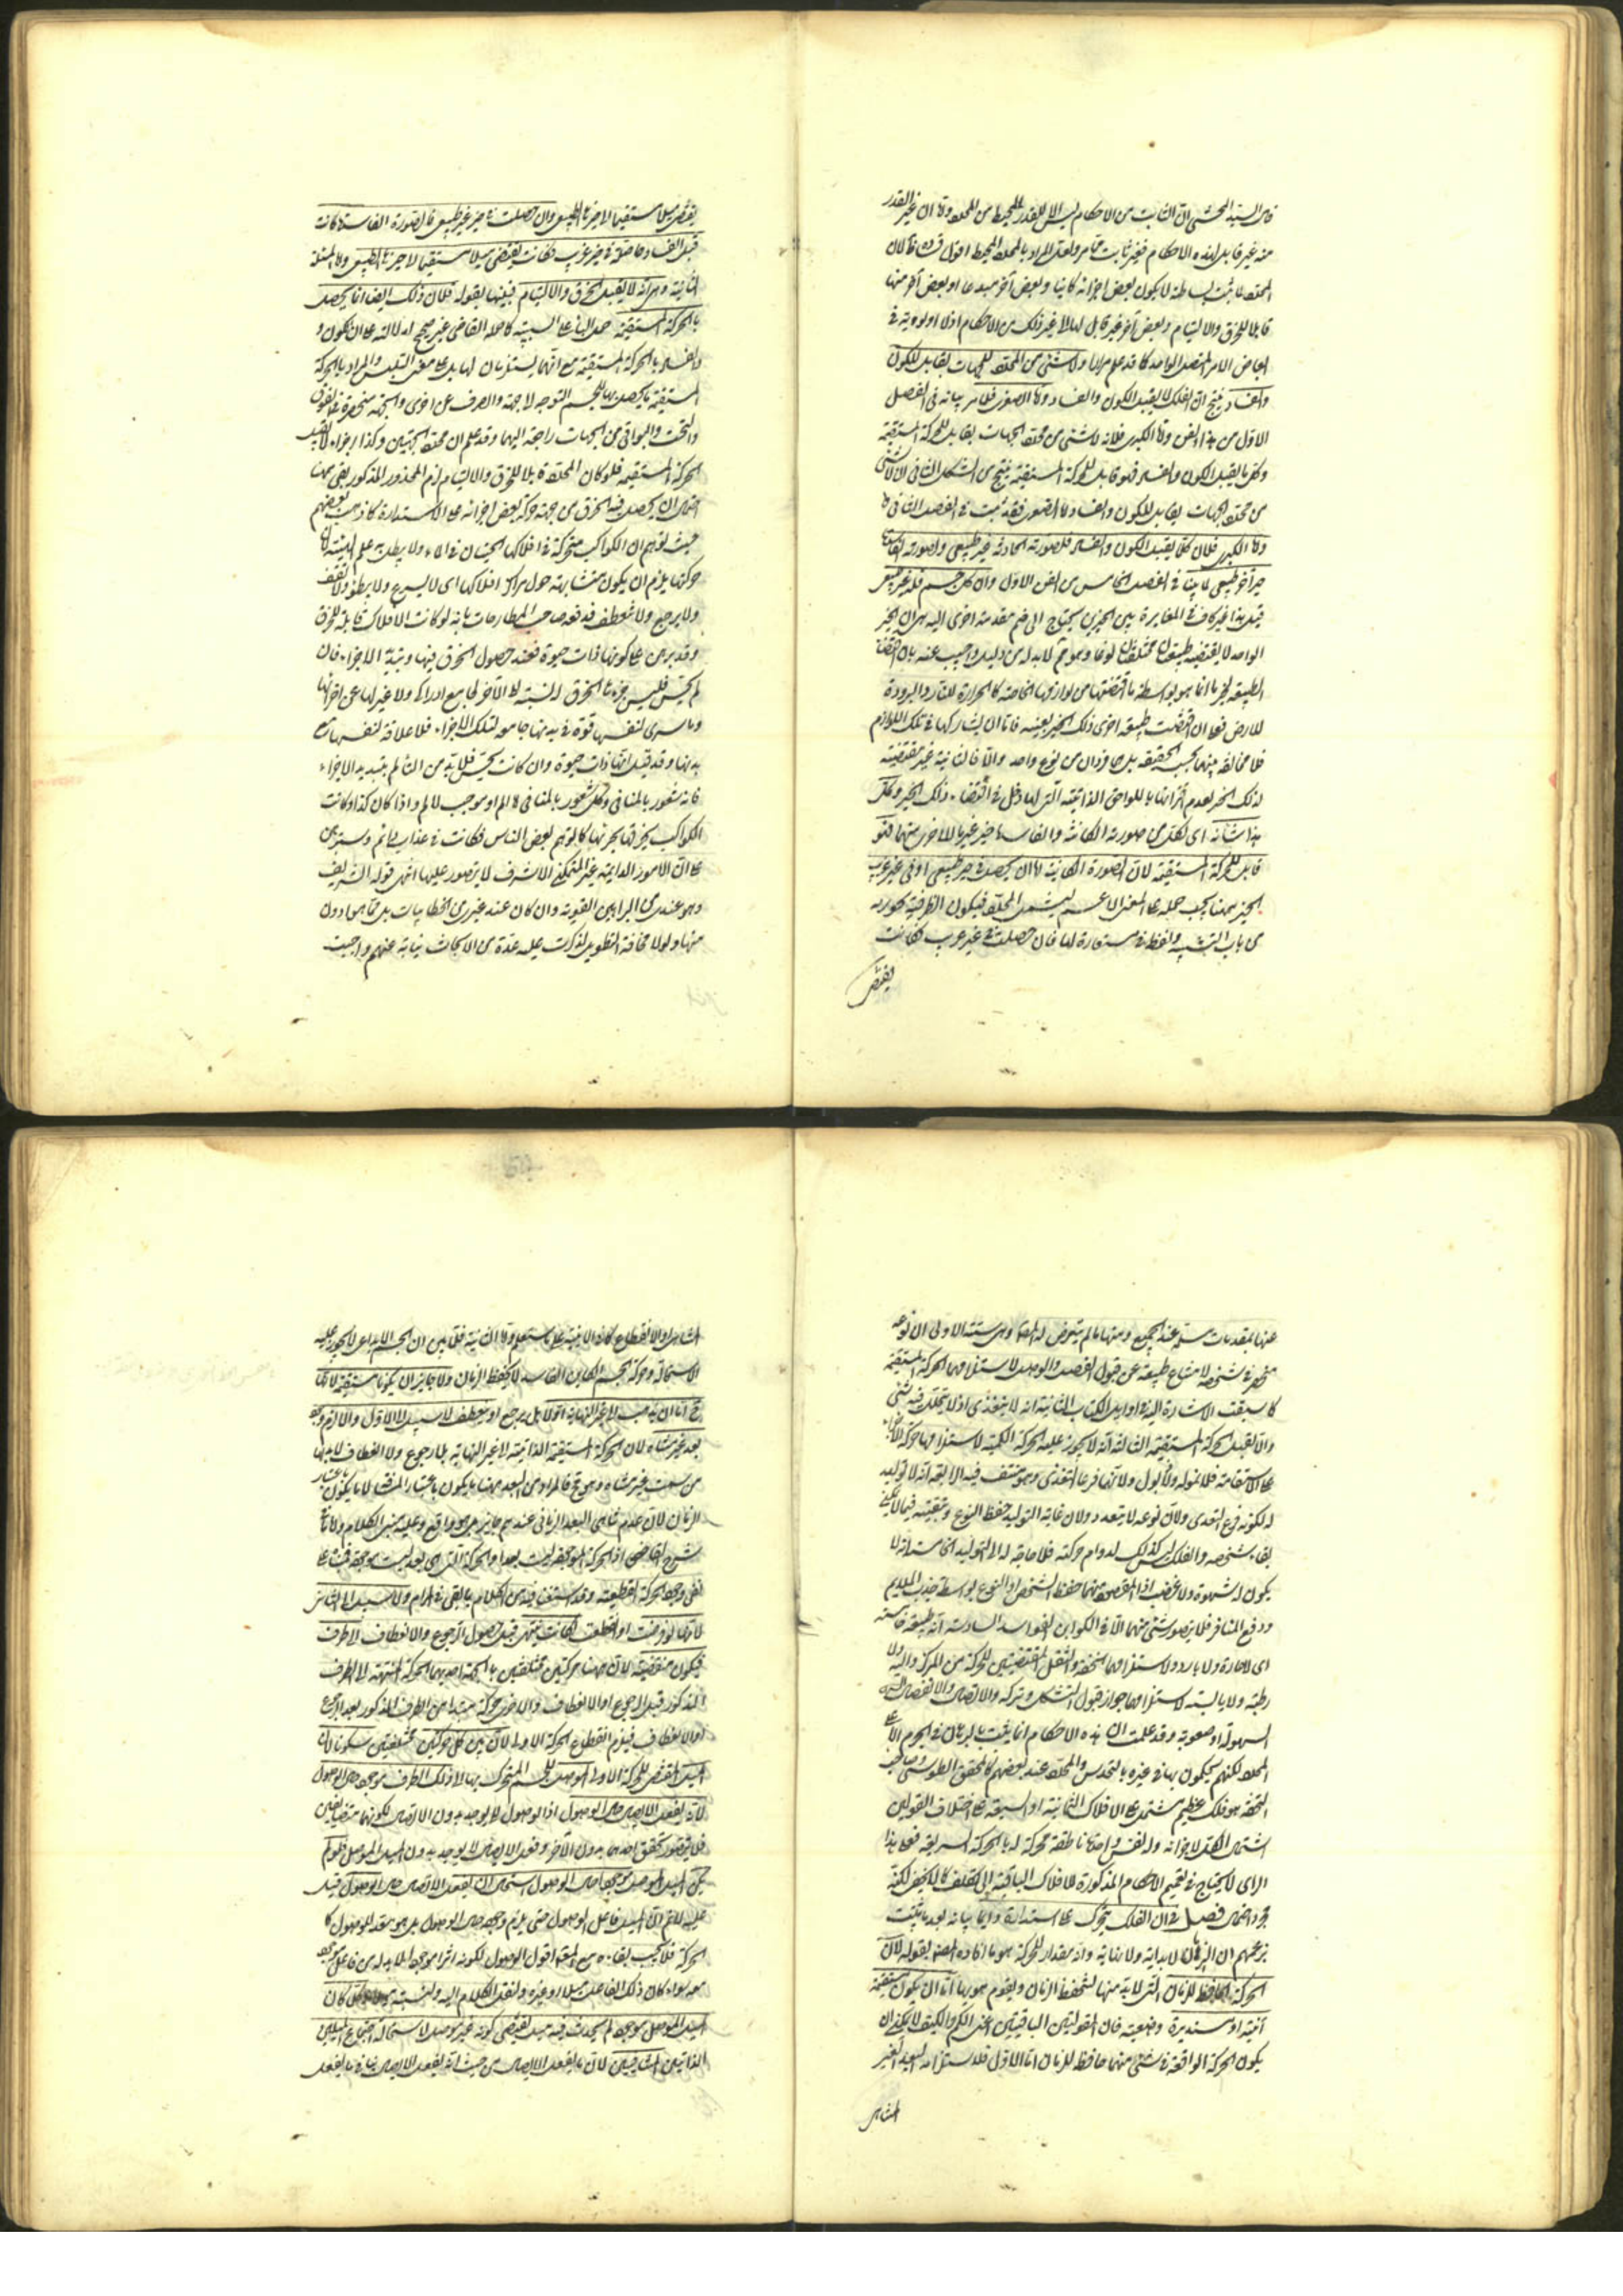 قال السيد المحشي ان الثابت من الاحكام ليس الا للقدر المحيط من المحدد واما ان غير القدر
منه غير قابل لهذه الاحكام فغير ثابت مما مر ولعل المراد بالمحدد المحيط اقول قدس فان لان
المحدد لما ثبت بساطته لا يكون بعض اجزائه كائنا وبعض آخر مبدعا او بعض آخر منها
قابلا للخرق والالتيام وبعض آخر غير قابل لهما الى غير ذلك من الاحكام اذ لا اولوية في
ابعاض الامر المتصل الواحد كما قد علم مرارا ولا شئ من المحدد للجهات بقابل للكون
والفساد ينتج ان الفلك لا يقبل الكون والفساد واما الصغرى فلما مر بيانه في الفصل
الاول من هذا الفن واما الكبرى فلانه لا شئ من محدد الجهات بقابل للحركة المستقيمة
وكل ما يقبل الكون والفساد فهو قابل للحركة المستقيمة ينتج من الشكل الثاني ان لا شئ
من محدد الجهات بقابل للكون والفساد اما الصغرى فقد ثبت في الفصل الثاني
واما الكبرى فلان كل ما يقبل الكون والفساد فلصورته الحادثة حيز طبيعي ولصورته الفاسدة
حيز آخر طبيعي لما بينا في الفصل الخامس من الفن الاول وان كل جسم فله حيز طبيعي
قيل هذا غير كاف في المغايرة بين الحيزين يحتاج الى ضم مقدمة اخرى اليه هي ان الحيز
الواحد لا يقتضيه طبيعتان مختلفتان نوعا وهو مما لا بد له من دليل واجيب عنه بان اقتضاء
الطبيعة لحيز ما انما هو بواسطة ما اقتضتها من لوازمها الخاصة كالحرارة للنار والبرودة
للارض فعلى ان اقتضت طبيعة اخرى ذلك الحيز بعينه فاما ان يشاركها في تلك اللوازم
فلا مخالفة بينهما بحسب الحقيقة بل هما فردان من نوع واحد والا فالثانية غير مقتضية
لذلك الحيز لعدم اقترانها باللواحق الذاتية التي لها دخل في اقتضاء ذلك الحيز وكل
هذا شانه اى لكل من صورته الكائنة والفاسدة حيز غير ما للاخرى منهما فهو
قابل للحركة المستقيمة لان الصورة الكائنة اما ان يحصل في حيز طبيعي او في حيز غريب
الحيز ههنا يجب حمله على المعنى الاعم ليشمل المحدد فيكون الظرفية تصويرية
من باب التشبيه ولفظ في مستعارة لها فان حصلت في حيز غريب كانت
يقتضي
يقتضي ميلا مستقيما الى حيزها الطبيعي وان حصلت في حيز طبيعي فالصورة الفاسدة كانت
قبل الفساد حاصلة في حيز غريب فكانت يقتضي ميلا مستقيما الى حيزها الطبيعي واما المسئلة
الثانية وهى انه لا يقبل الخرق والالتيام فبينها بقوله فلان ذلك ايضا انما يحصل
بالحركة المستقيمة حمل الباء على السببية كما حمله القاضي غير صحيح لدلالته على ان الكون و
الفساد بالحركة المستقيمة مع انهما يستلزمان لها بل على معنى التلبس والمراد بالحركة
المستقيمة ما يحصل بها للجسم التوجه الى جهة والصرف عن اخرى والجهة منحصرة في الفوق
والتحت والبواقي من الجهات راجعة اليهما وقد علم ان محدد الجهتين وكذا اجزاؤه لا يقبل
الحركة المستقيمة فلو كان المحدد قابلا للخرق والالتيام لزم المحذور المذكور بقى ههنا
احتمال ان يحصل فيه الخرق من جهة حركة بعض اجزائه على الاستدارة كما ذهب بعضهم
حيث توهم ان الكواكب متحركة في افلاكها كالحيتان في الماء ولا يطلب به علم الهيئة لان
حركتها يلزم ان يكون متشابهة حول مراكز افلاكها اى لا يسرع ولا يبطؤ ولا تقف
ولا يرجع ولا ينعطف فدفعه صاحب المطارحات بانه لو كانت الافلاك قابلة للخرق
وقد برهن على كونها ذات حيوة فعند حصول الخرق فيها وتبدد الاجزاء فان
لم يحس فليس جزءها المنخرق بالنسبة الى الآخر لها مع ادراك ولا خبر لها عن اجزائها
وما سرى لنفسها قوة في بدنها جامعة لتلك الاجزاء فلا علاقة لنفسها مع
بدنها وقد قيل انها ذات حيوة وان كانت يحس فلا بد من ان تألم بتبديد الاجزاء
فانه شعور بالمنافي وكل شعور بالمنافي الم او موجب لالم واذا كان كذا وكانت
الكواكب يخرقها بجريها كما توهم بعض الناس فكانت في عذاب دائم وستبرهن
على ان الامور الدائمة غير الممكن الاشرف لا يتصور عليها انتهى قوله الشريف
وهو عندى من البراهين القوية وان كان عند غيرى من الخطابيات بل مما هو ادون
منها ولولا مخافة التطويل لذكرت عليه عدة من الابحاث نيابة عنهم واجبت
عنها بمقدمات مسلمة عند الجميع ومنها ما لم يتعرض له المصنف وهى ستة الاولى ان نوعه
منحصر في شخصه لامتناع طبيعته عن قبول الفصل والوصل لاستلزامهما الحركة المستقيمة
كما سبقت الاشارة اليه في اوايل الكتاب الثانية انه لا يتغذى اذ لا يتحلل منه شئ
والا لقبل الحركة المستقيمة الثالثة انه لا يجوز عليه الحركة الكمية لاستلزامها حركة الاجزاء
على الاستقامة فلا نمو له ولا ذبول ولانهما فرعا التغذى وهو منتف فيه الرابعة انه لا توليد
له لكونه فرع التغذى ولان نوعه لا يتعدد ولان غاية التوليد حفظ النوع وتبقيته فيما لا يمكن
بقاء شخصه والفلك ليس كذلك لدوام حركته فلا حاجة له الى التوليد الخامسة انه لا
يكون له شهوة ولا غضب اذ المقصود منهما حفظ الشخص او النوع بواسطة جذب الملايم
ودفع المنافر فلا يتصور شئ منهما الا في الكواين الفواسد السادسة انه طبيعة خامسة
اى لا حارة ولا باردة لاستلزامهما الخفة والثقل المقتضيين للحركة من المركز واليه ولا
رطبة ولا يابسة لاستلزامهما جواز قبول التشكل وتركه والاتصال والانفصال
بسهولة او صعوبة وقد علمت ان هذه الاحكام انما يثبت بالبرهان في الجرم الاعلى
المحدد لكنهم يحكمون بها في غيره بالحدس والمحدد عند بعضهم كالمحقق الطوسي وصاحب
التحفة هو فلك عظيم مشتمل على الافلاك الثمانية او السبعة على اختلاف القولين
اشتمال الكل لاجزائه وله نفس واحدة ناطقة محركة له بالحركة السريعة فعلى هذا
الراى لا يحتاج في تعميم الاحكام المذكورة للافلاك الباقية الى تكلف كما لا يخفى لكنه
مجرد احتمال فصل في ان الفلك يتحرك على الاستدارة دائما بيانه بعد ما يثبت
بزعمهم ان الزمان لا بداية له ولا نهاية وانه مقدار للحركة هو ما افاده المصنف بقوله لان
الحركة الحافظة للزمان التي لا بد منها لتحفظ الزمان ويقوم هو بها اما ان يكون مستقيمة
اينية او مستديرة وضعية فان المقولتين الباقيتين اعنى الكم والكيف لا يمكن ان
يكون الحركة الواقعة في شئ منهما حافظة للزمان اما الاول فلاستلزامه البعد الغير
المتناهى
المتناهى او الانقطاع كما في الاينية على ما ستعلم واما الثانية فلما بين ان الجسم الابداعى لا يجوز عليه
الاستحالة وحركة الجسم الكاين الفاسد لا يحفظ الزمان ولا جايز ان يكون مستقيمة لانها
ح اما ان يذهب الى غير النهاية او لا بل يرجع او ينعطف لا سبيل الى الاول والا لزم وجود
بعد غير متناه لان الحركة المستقيمة الذاتية الى غير النهاية بلا رجوع ولا انعطاف لا بد لها
من مسافة غير متناه وهو مح فالمراد من البعد ههنا ما يكون باعتبار المسافة لا ما يكون باعتبار
الزمان لان عدم تناهى البعد الزمانى عندهم جايز بل هو واقع وعليه مبنى الكلام ولا ما في
شرح القاضي اذ الحركة الموجودة ليست بعدا والحركة التي هى بعد ليست موجودة فمبنى على
نفى وجود الحركة القطعية وقد استقر فيه من الكلام ما يكفى في المرام ولا سبيل الى الثانى
لانها لو رجعت او انعطفت لكانت تنتهى قبل حصول الرجوع والانعطاف الى طرف
فيكون منقطعة لان ههنا حركتين مختلفتين بالجهة احديهما الحركة المنتهية الى الطرف
المذكور قبل الرجوع او الانعطاف والاخرى حركة مبتدأة من الطرف المذكور بعد الرجوع
او الانعطاف فيلزم انقطاع الحركة الاولى لان بين كل حركتين مختلفتين سكونا لان
الميل المقتضى للحركة الاولى الموصل للجسم المتحرك بها الى ذلك الطرف موجود حال الوصول
لانه يفعل الايصال حال الوصول اذ الوصول لا يوجد بدون الايصال لكونهما متضايفين
فلا يتصور تحقق احدهما بدون الآخر وفعل الايصال لا يوجد بدون الميل الموصل فلو لم
يكن الميل الموصل موجودا حال الوصول استحال ان يفعل الايصال حال الوصول قيل
عليه لا نم ان الميل فاعل الوصول حتى يلزم وجوده حال الوصول بل هو معد للوصول كما
الحركة فلا يجب بقاءه مع المعد اقول الوصول لكونه اثرا موجودا لا بد له من فاعل موجود
معه سواء كان ذلك الفاعل ميلا او غيره ولننقل الكلام اليه وليسبه ميلا وكلما كان
الميل الموصل موجودا لم يحدث فيه ميل يقتضى كونه غير موصل لاستحالة اجتماع الميلين
الذاتيين المتنافيين لان ما يفعل الايصال من حيث انه يفعل الايصال ينافى ما يفعل